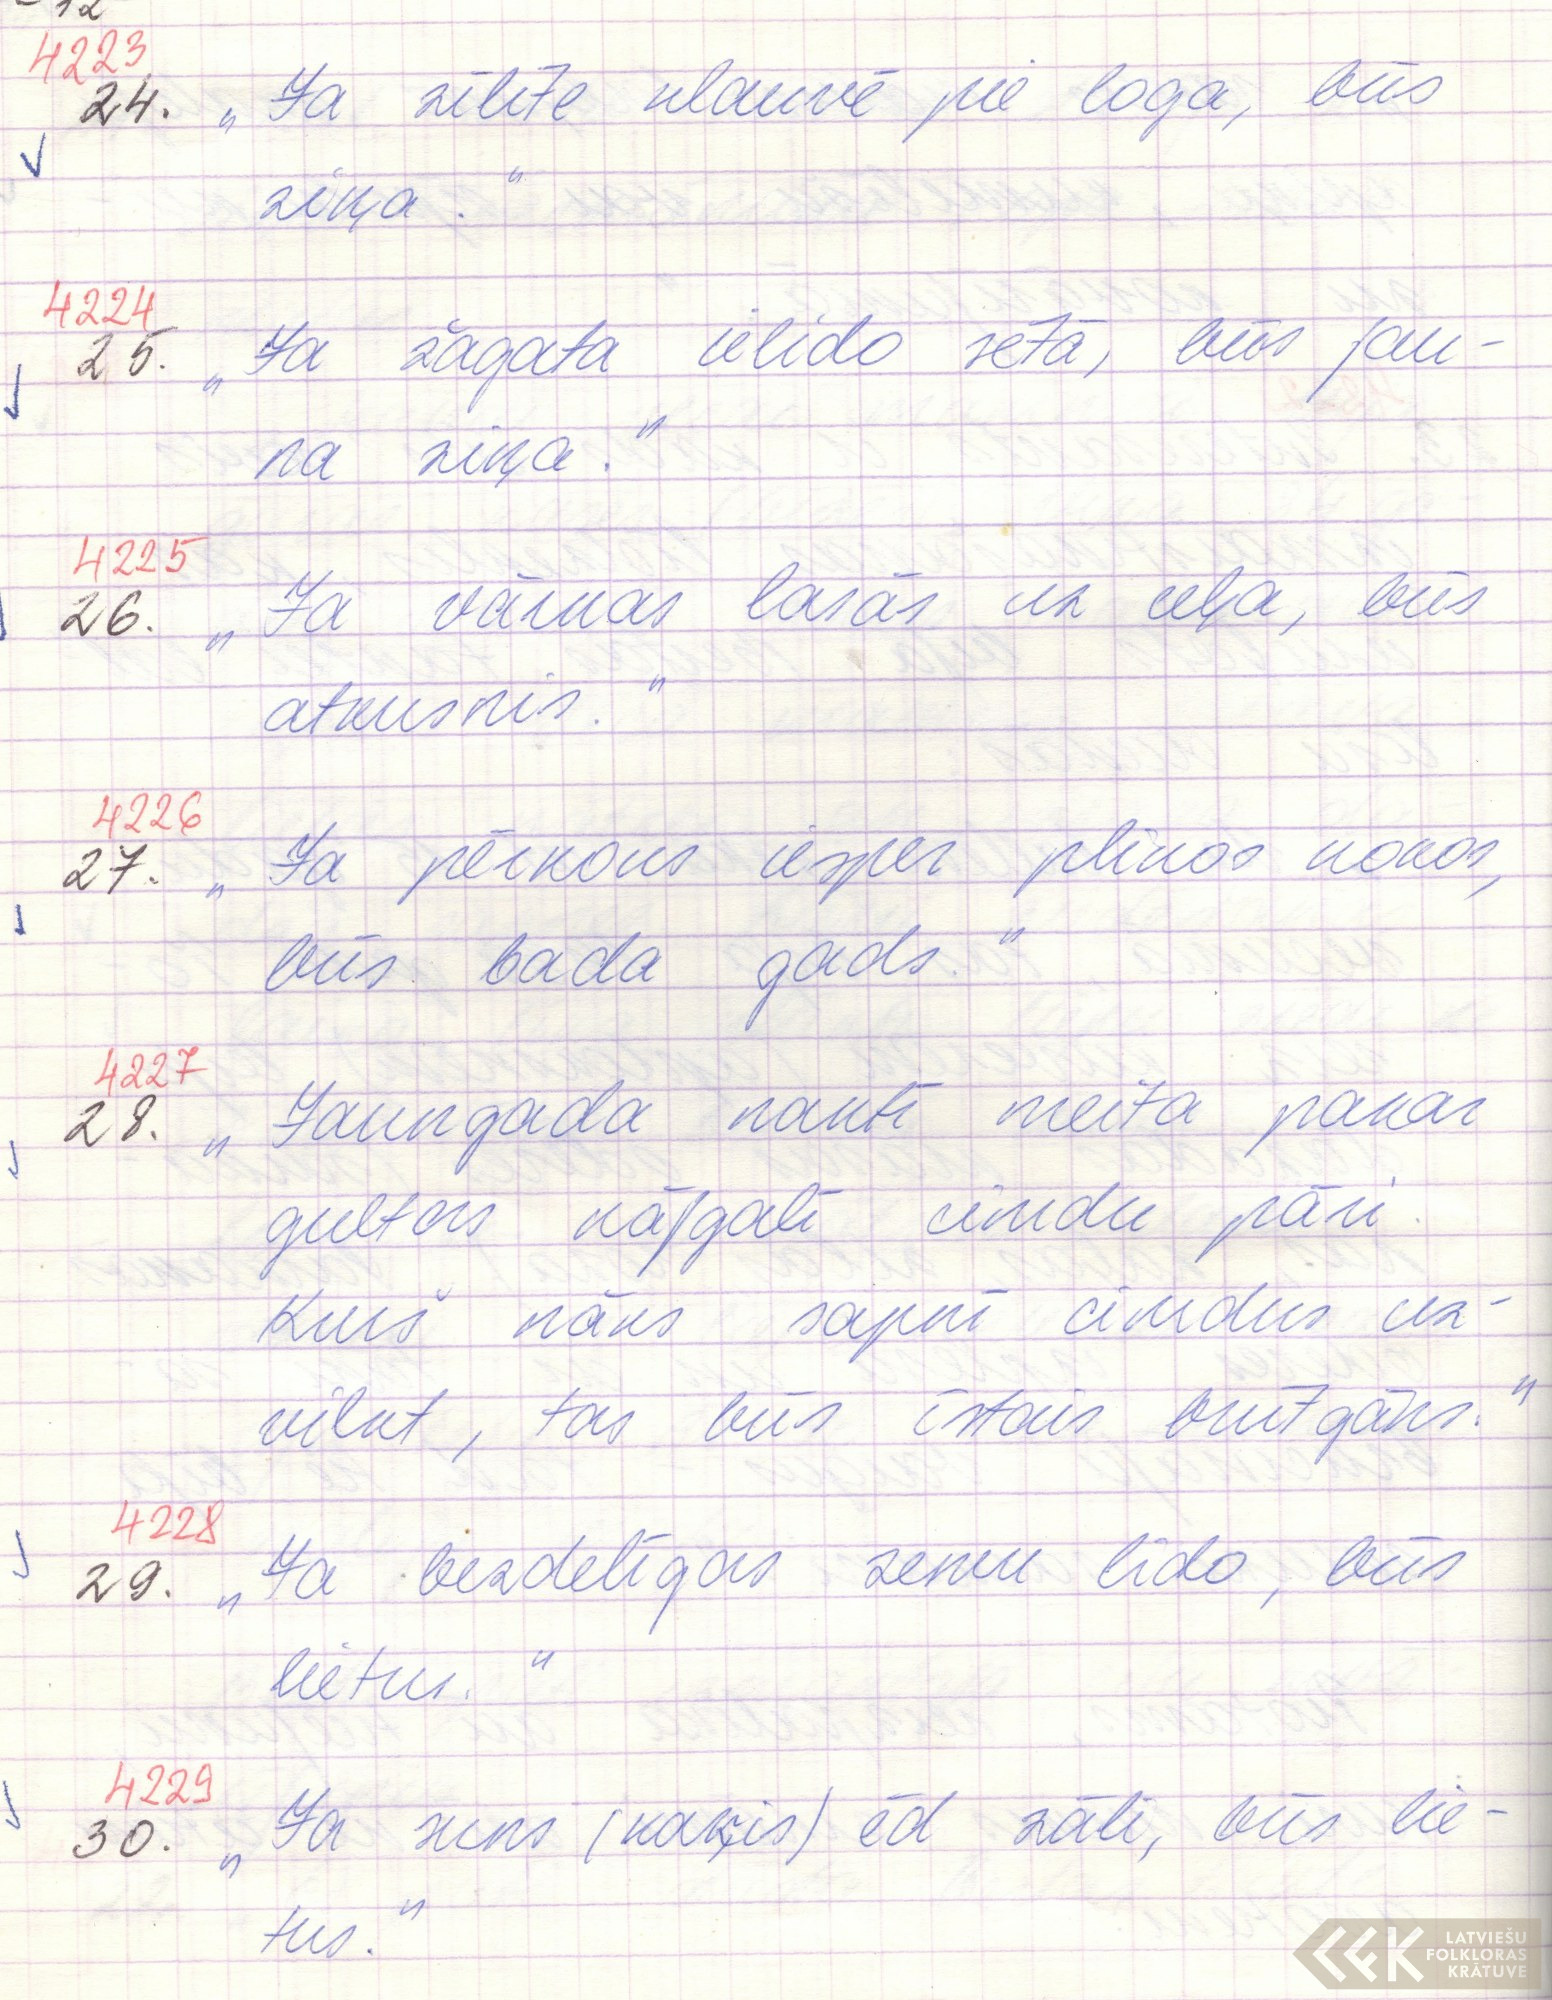 4223
24. „Ja zīlīte klauvē pie loga, būs
ziņa."
4224
25. „Ja žagata ielido sētā, būs jau-
na ziņa."
4225
26. „Ja vārnas lasās uz ceļa, būs
atkusnis."
4226
27. „Ja pērkons iesper plikos kokos,
būs bada gads."
4227
28. „Jaungada naktī meita pakar
gultas kājgalī cimdu pāri.
Kurš nāks sapnī cimdus uz-
vilkt, tas būs īstais brūtgāns."
4228
29. „Ja bezdelīgas zemu lido, būs
lietus."
4229
30. „Ja suns (kaķis) ēd zāli, būs lie-
tus."
LATVIEŠU
FOLKLORAS
KRĀTUVE